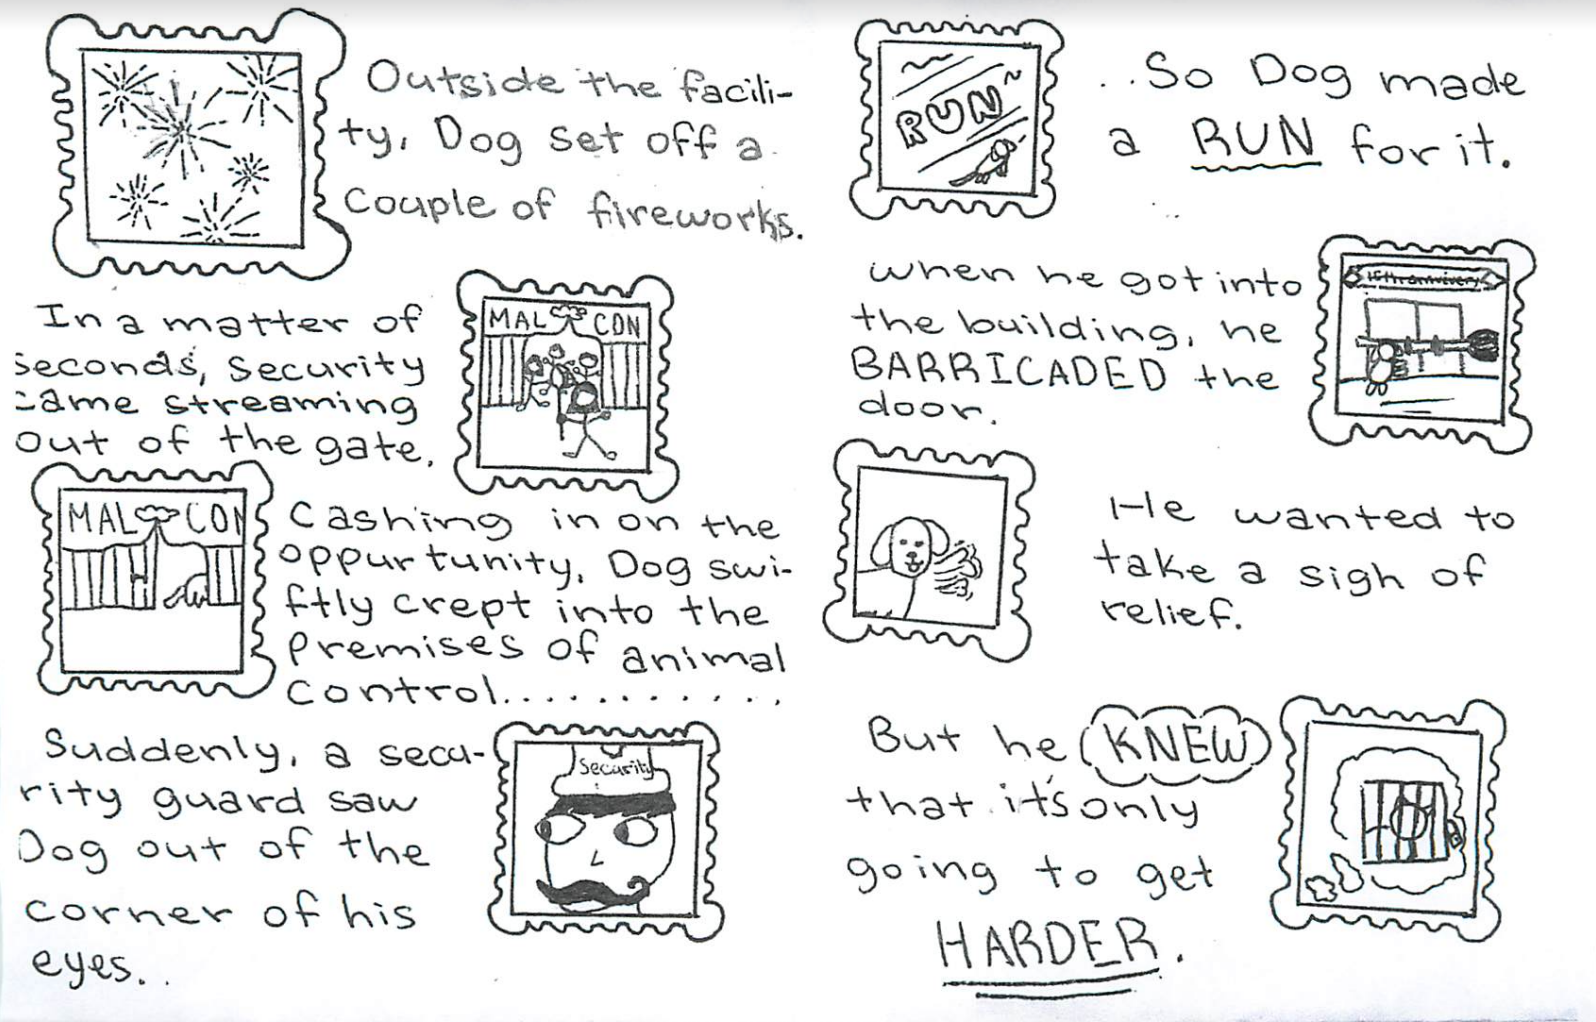 Outside the facili-
ty, Dog set off a
couple of fireworks.
In a matter of
seconds, security
came streaming
out of the gate.
MAL CON
MAL CON
Cashing in on the
oppurtunity, Dog swi-
ftly crept into the
premises of animal
control...........
Suddenly, a secu-
rity guard saw
Dog out of the
corner of his
eyes..
Security
RUN
..So Dog made
a RUN for it.
when he got into
the building, he
BARRICADED the
door.
15th annivery
He wanted to
take a sigh of
relief.
But he KNEW
that it's only
going to get
HARDER.